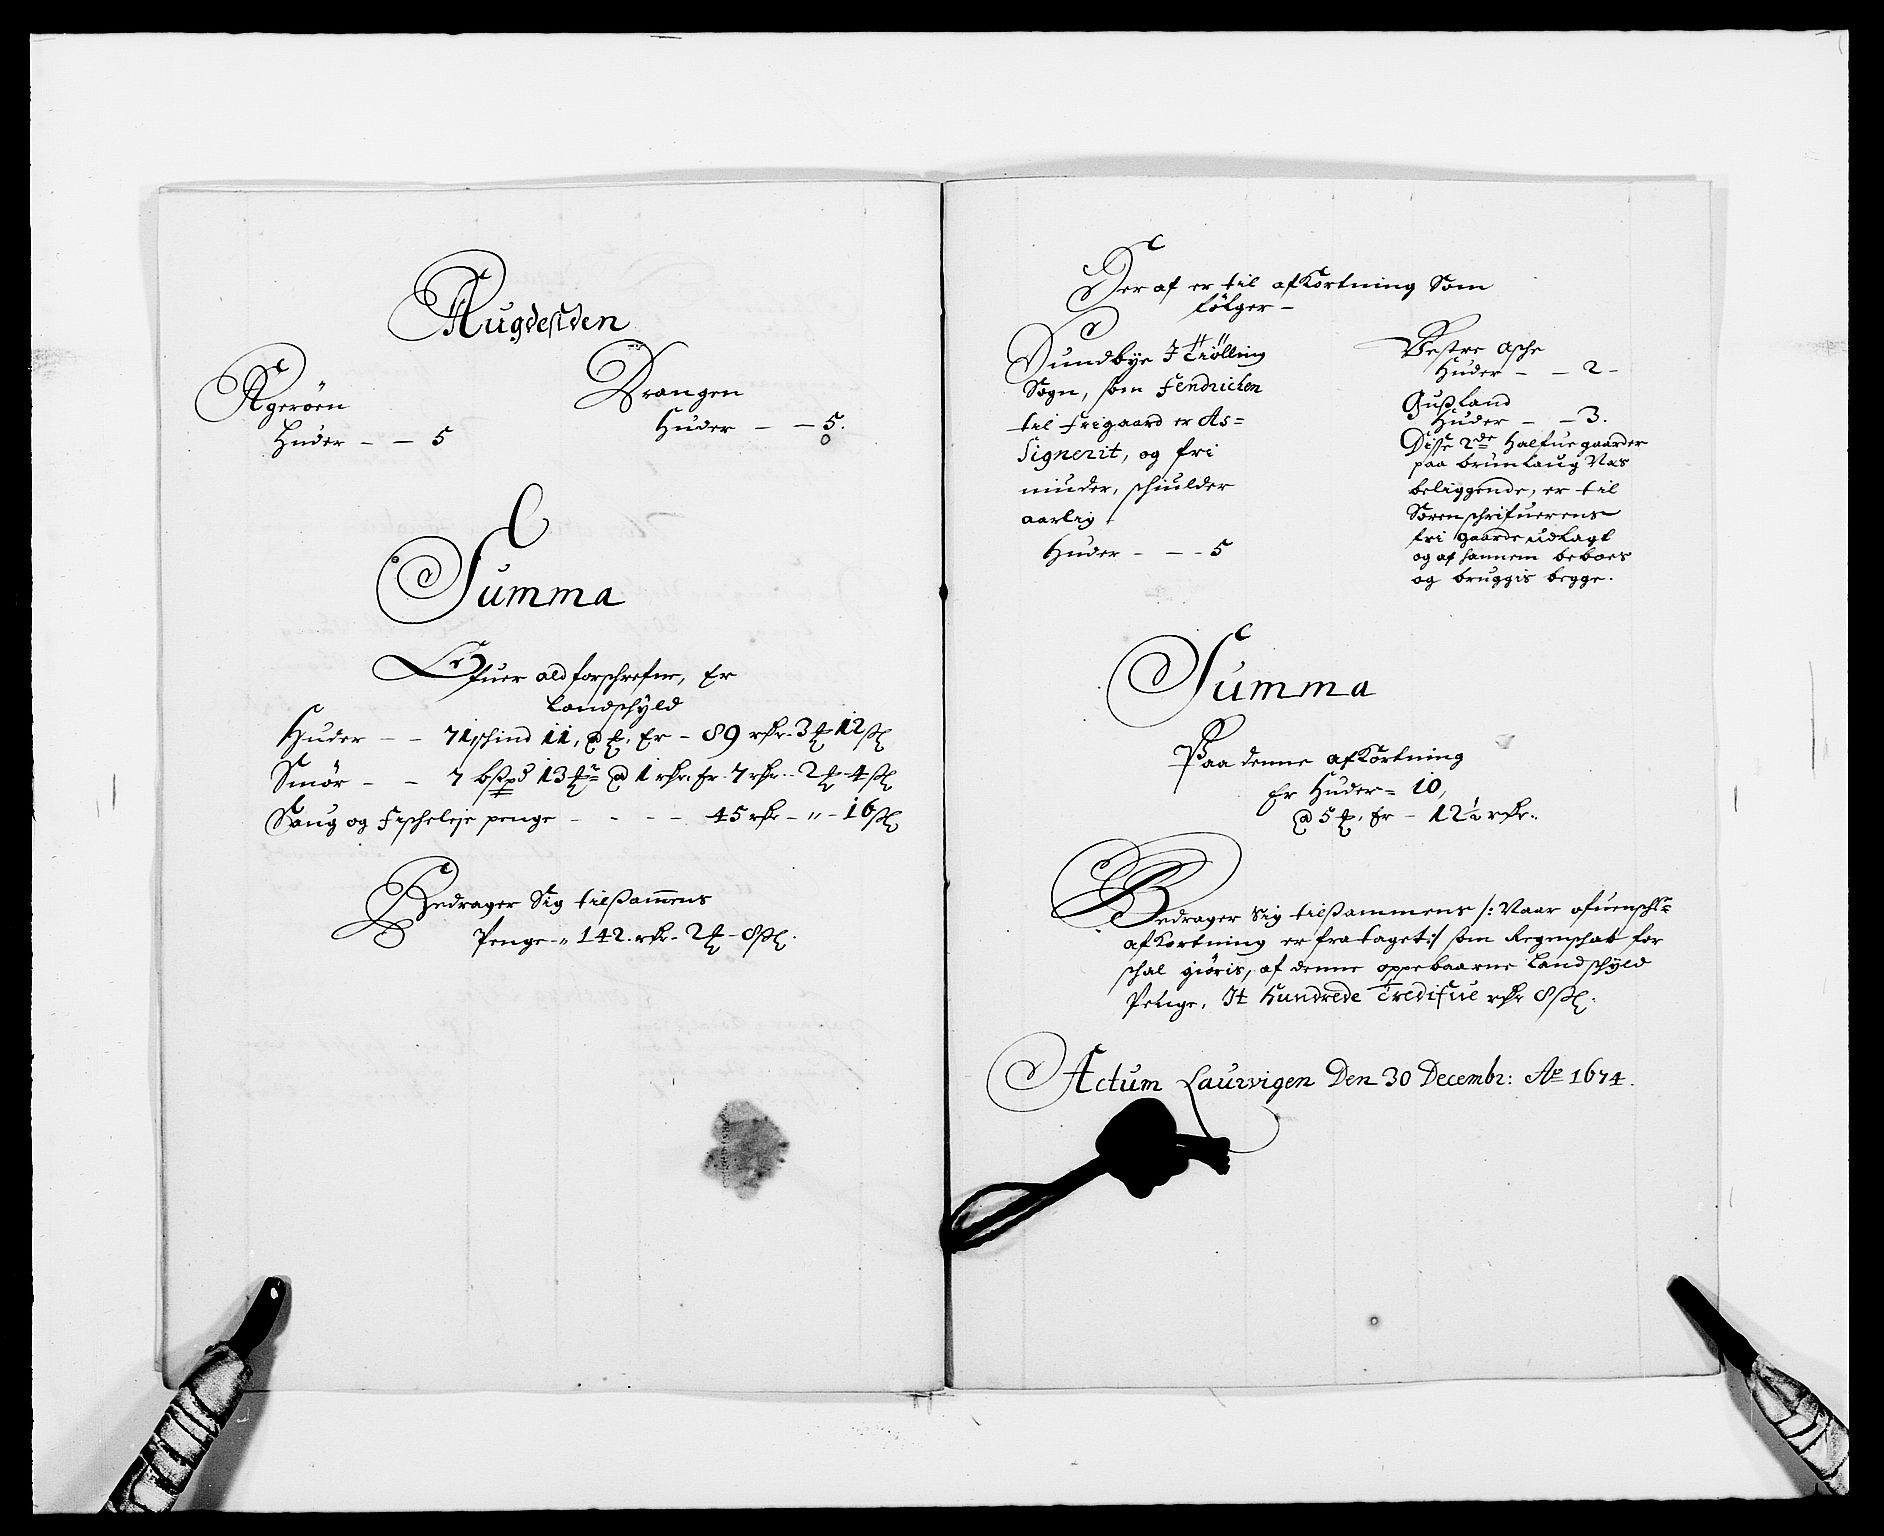 Augdestden
Agerøen
Huder - - 5
Drangen
Huder - - 5.
Summa
Ofuer ald forschrefne, Er
Landschyld
Huder - - 71, schind 11, @ Er - 89 rdr. 3 12 ß
Smör - - 7 bßpd 13 @ 1 rdr. Er 7 rdr. - 2 - 4 ß
Saug og Fischeleje penge - - - - 45 rdr - " - 16 ß
Bedrager Sig tilßammens
Penge - " 142. rdr. - 2 - 8 ß.
Der af er til afKortning Som
følger -
Sundbye I Tiølling
Sogn, som Fendrichen
til frigaard er As=
Signerit, og fri
niuder, schiulder
aarlig
Huder - - - 5
Vestre Asche
Huder - - 2 -
Gußland
Huder - - 3.
Disse 2de Halfue gaarder
paa brunlaug Næs
beliggende, er til
Sorenschrifuerens
fri gaarde udlagt
og af hannem beboes
og bruggis begge.
Summa
Paa denne afKortning
Er Huder = 10,
@ 5 , Er - 12½ rdr.
Bedrager Sig tilßammens /: Naar ofuenschr:
afKortning er frataget :/ som Regenschab for
schal giøris, af denne oppebaarne Landschyld
Penge, It Hundrede Tredifue rdr 8 ß.
Actum Laurvigen Den 30 Decembr: Ao 1674.